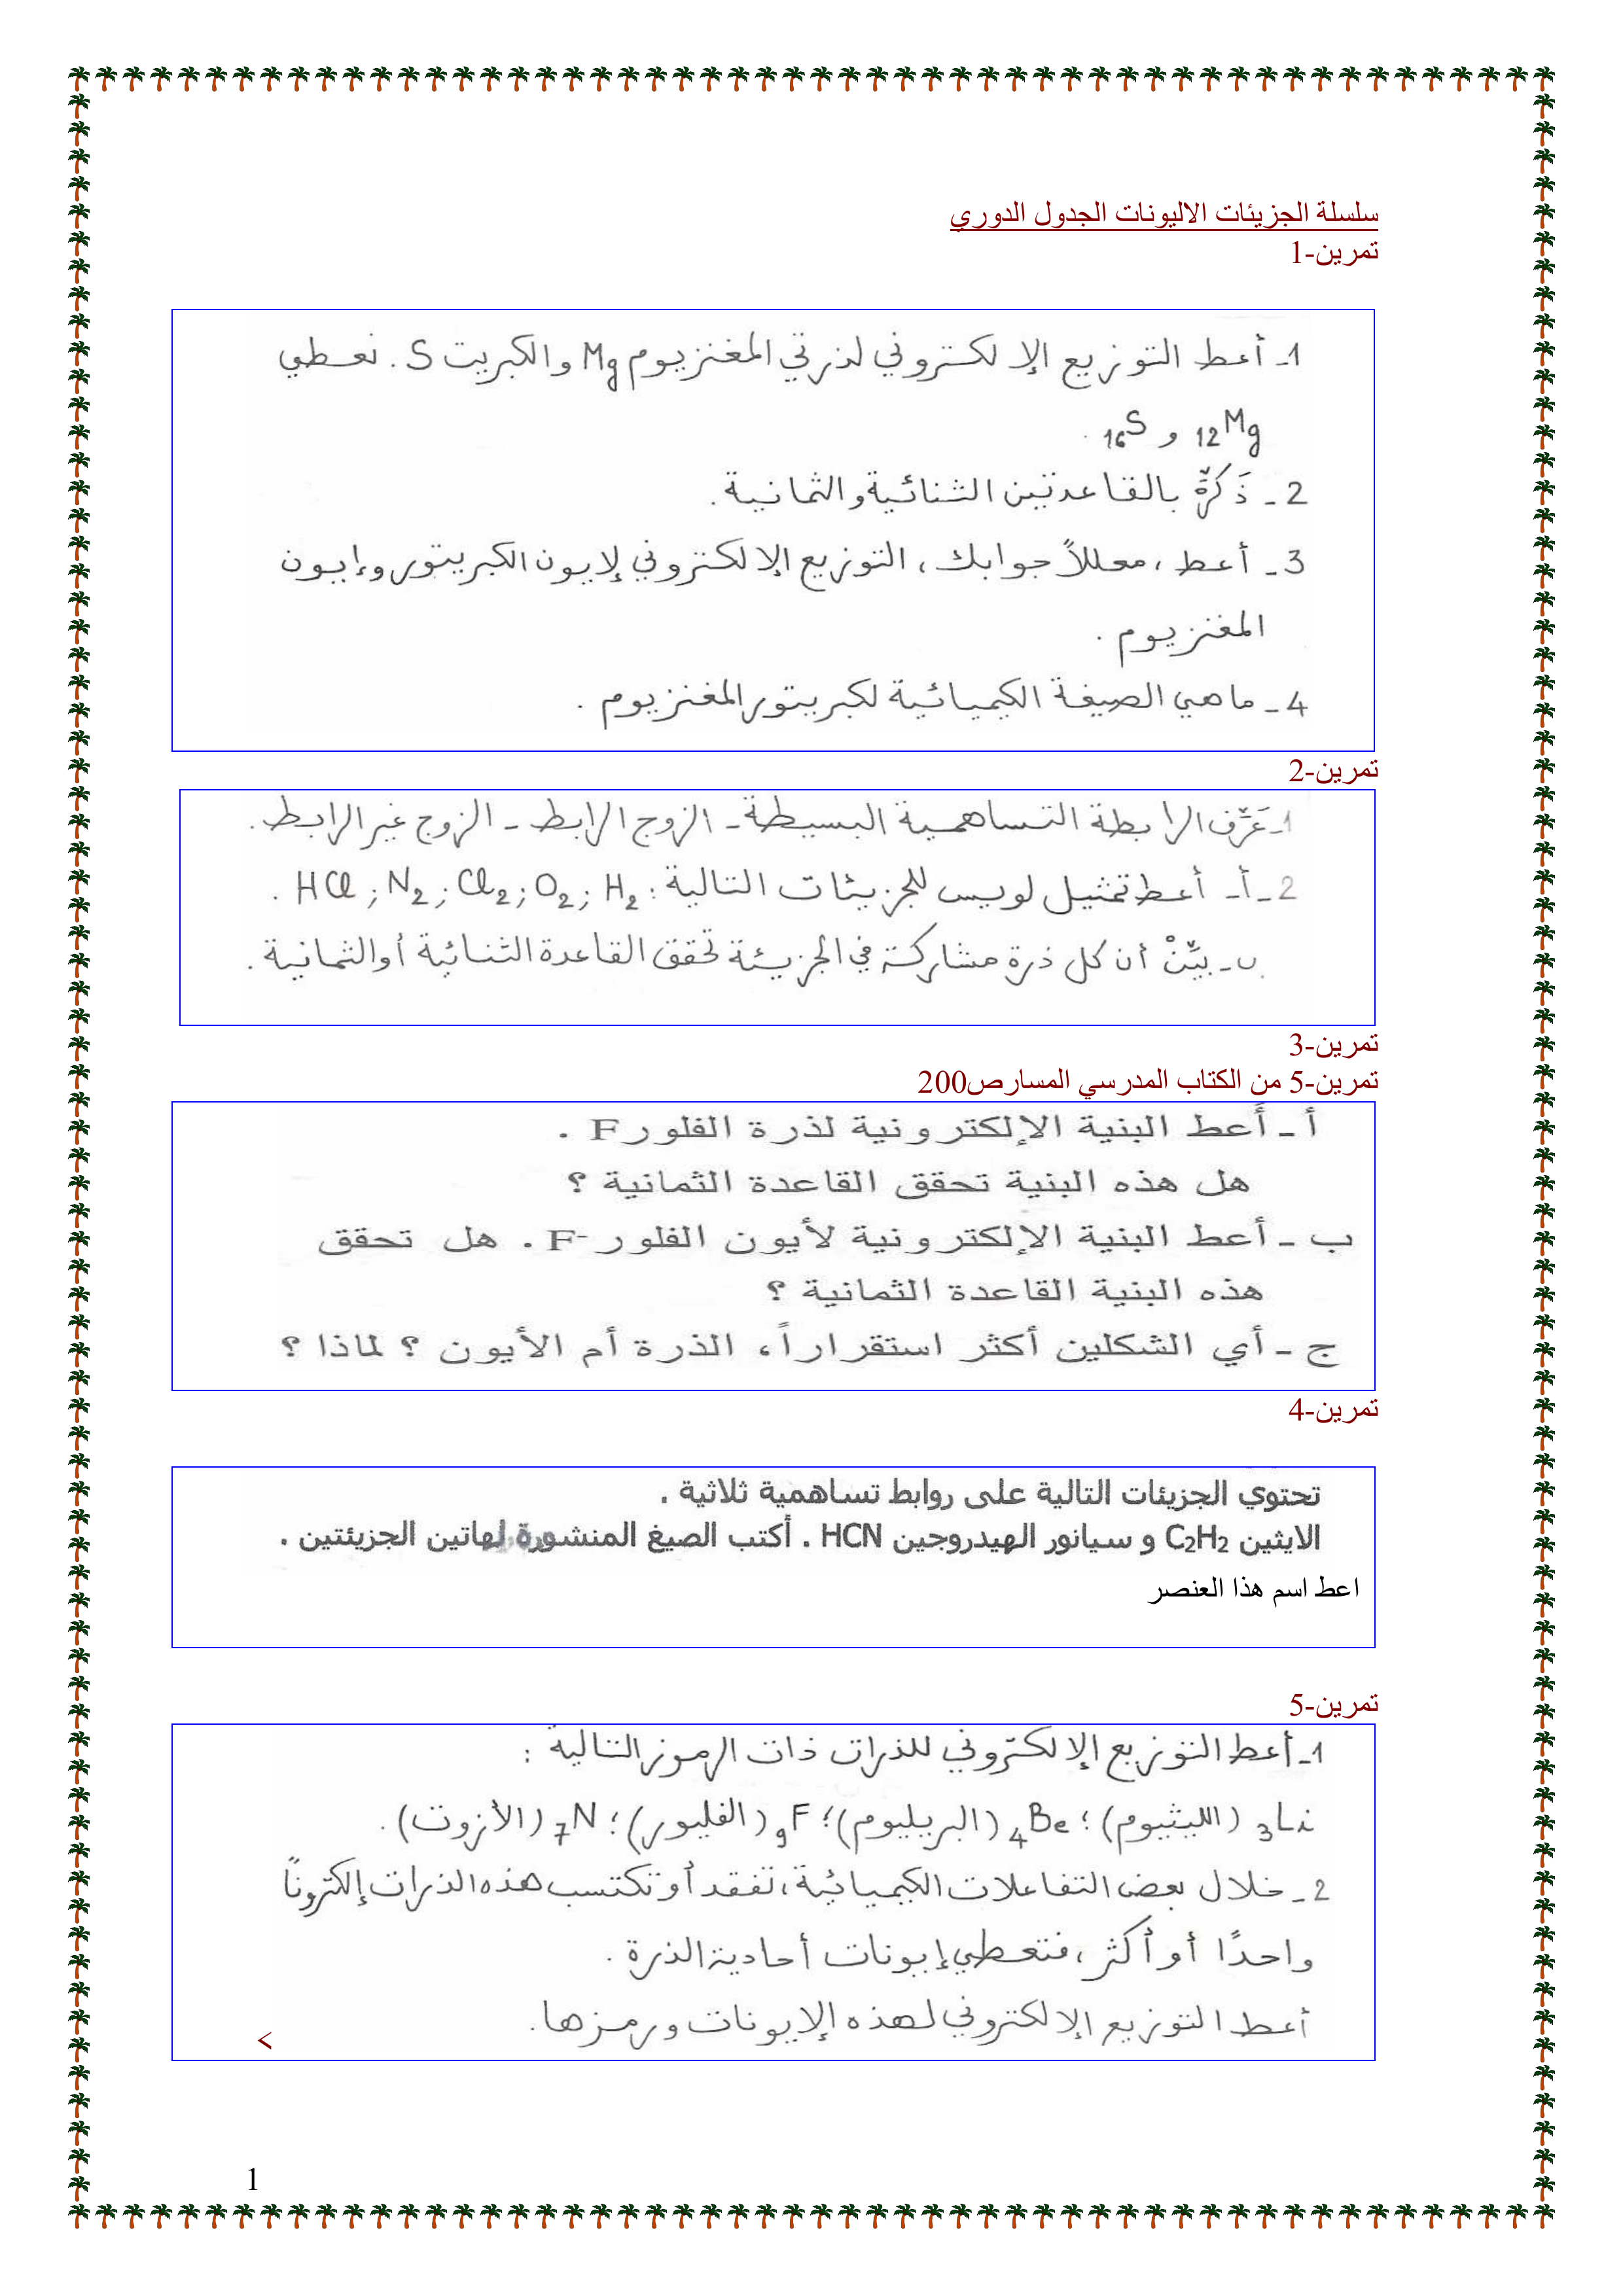 سلسلة الجزيئات الاليونات الجدول الدوري
تمرين-1
1- أعط التوزيع الإلكتروني لذرتي المغنزيوم Mg والكبريت S. نعطي
₁₂Mg و ₁₆S .
2 - ذَكِّرْ بالقاعدتين الثنائية والثمانية .
3 - أعط ، معللاً جوابك ، التوزيع الإلكتروني لإيون الكبريتور وإيون
المغنزيوم .
4 - ما هي الصيغة الكيميائية لكبريتور المغنزيوم .
تمرين-2
1- عَرِّف الرابطة التساهمية البسيطة - الزوج الرابط - الزوج غير الرابط .
2 - أ - أعط تمثيل لويس للجزيئات التالية : H₂ ; O₂ ; Cl₂ ; N₂ ; HCl .
ب - بيِّنْ أن كل ذرة مشاركة في الجزيئة تحقق القاعدة الثنائية أو الثمانية .
تمرين-3
تمرين-5 من الكتاب المدرسي المسارص200
أ - أعط البنية الإلكترونية لذرة الفلور F .
هل هذه البنية تحقق القاعدة الثمانية ؟
ب - أعط البنية الإلكترونية لأيون الفلور F⁻ . هل تحقق
هذه البنية القاعدة الثمانية ؟
ج - أي الشكلين أكثر استقراراً، الذرة أم الأيون ؟ لماذا ؟
تمرين-4
تحتوي الجزيئات التالية على روابط تساهمية ثلاثية .
الايثين C₂H₂ و سيانور الهيدروجين HCN . أكتب الصيغ المنشورة لهاتين الجزيئتين .
اعط اسم هذا العنصر
تمرين-5
1- أعط التوزيع الإلكتروني للذرات ذات الرموز التالية :
₃Li (الليثيوم) ؛ ₄Be (البريليوم) ؛ ₉F (الفليور) ؛ ₇N (الأزوت) .
2 - خلال بعض التفاعلات الكيميائية ، تفقد أو تكتسب هذه الذرات إلكترونًا
واحدًا أو أكثر ، فتعطي إيونات أحادية الذرة .
أعط التوزيع الإلكتروني لهذه الإيونات ورمزها .
>
1